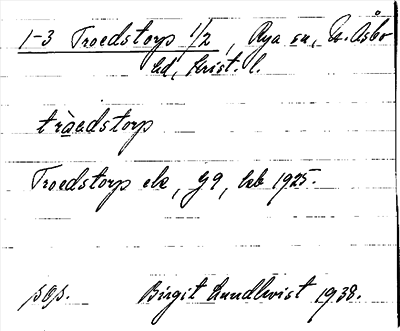 1-3 Troedstorp 1/2, Rya sn, N. Åsbo
hd, Krist. l.
tràedstorp
Troedstorp ek, g9, kb 1925.
pop. Birgit Lundkvist 1938.